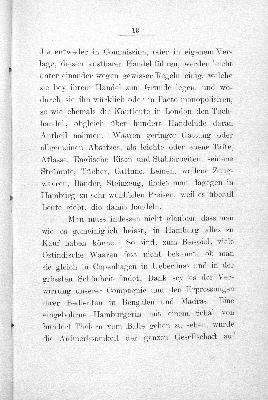 13
die entweder in Commission, oder in eigenem Ver-
lage, diesen kostbaren Handel führen, werden leicht
unter einander wegen gewisser Regeln einig, welche
sie bey ihrem Handel zum Grunde legen, und wo-
durch sie ihn würklich oder in Facto monopolisiren,
so wie ehemals die Kaufleute in London den Tuch-
handel, obgleich über hundert Handelnde daran
Antheil nahmen. Waaren geringer Gattung oder
allgemeinen Absatzes, als leichte oder ebene Tafte,
Atlasse, Englische Eisen und Stahlarbeiten, seidene
Strümpfe, Tücher, Cattune, Leinen, wollene Zeug-
waaren, Bänder, Steinzeug, findet man dagegen in
Hamburg zu sehr wohlfeilen Preisen, weil es überall
Leute giebt, die damit handeln.
Man muss indessen nicht glauben, dass man
wie es gemeiniglich heisst, in Hamburg alles zu
Kauf haben könne. So sind, zum Beispiel, viele
Ostindische Waaren fast nicht bekannt, ob man
sie gleich in Copenhagen in Ueberfluss und in der
grössten Schönheit findet. Dank sey es der Ver-
wirrung unserer Compagnie und den Erpressungen
ihrer Bedienten in Bengalen und Madras. Eine
eingebohrne Hamburgerin mit einem Schal von
hundert Thalern vom Balle gehen zu sehen, würde
die Aufmerksamkeit der ganzen Gesellschaft auf